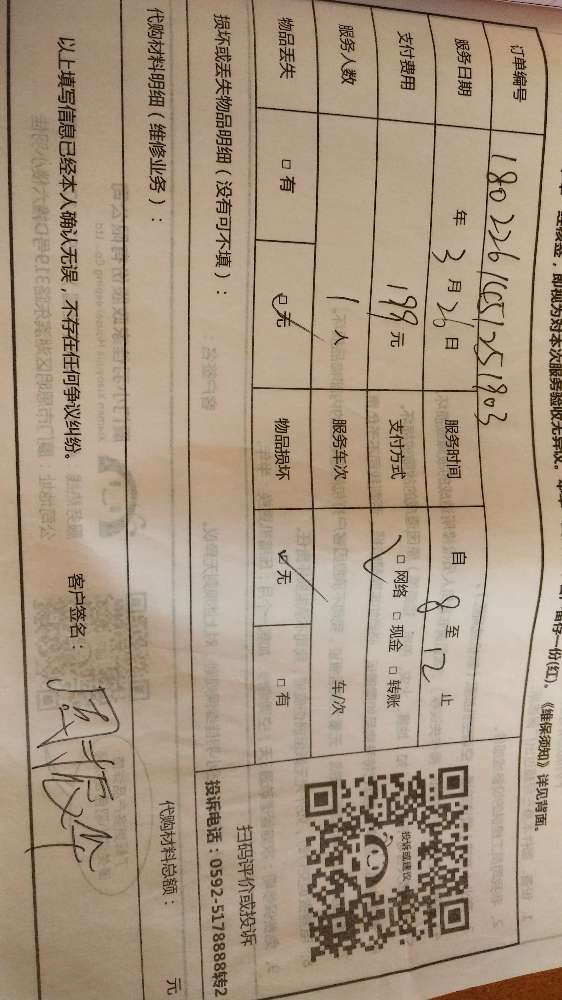 即视为对本次服务验收无异议。
留存一份(红)。《维保须知》详见背面。
订单编号 1802261651251803
服务日期 年 3月26日 服务时间 自 8 至 12 止
支付费用 199元 支付方式 □网络 □现金 □转账
服务人数 1人 服务车次 车/次
物品丢失 □有 □无 物品损坏 □无 □有
投诉或建议
扫码评价或投诉
投诉电话：0592-5178888转2
损坏或丢失物品明细（没有可不填）：
代购材料明细（维修业务）：
代购材料总额： 元
以上填写信息已经本人确认无误，不存在任何争议纠纷。 客户签名：